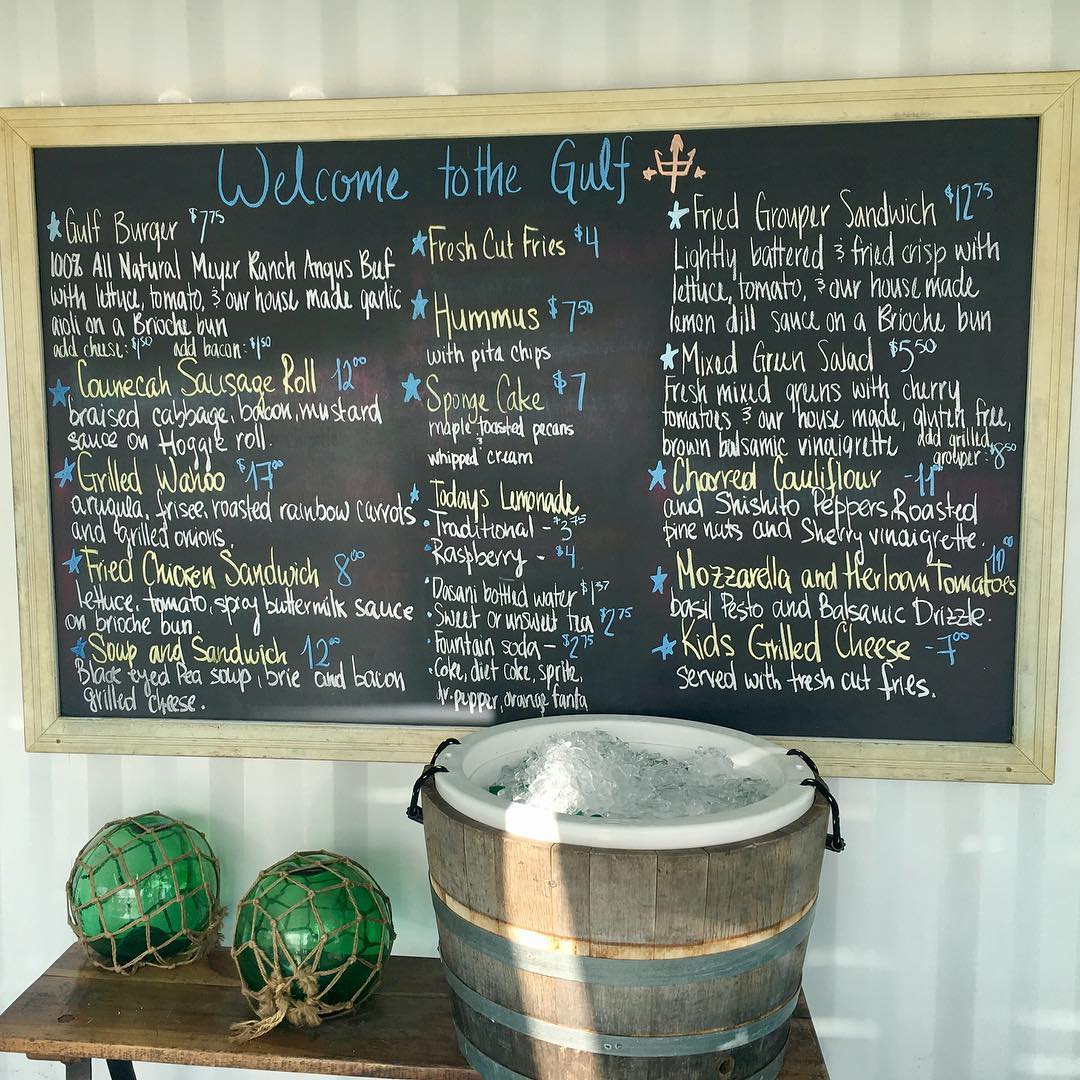 Welcome to the Gulf
Gulf Burger $7.75
100% All Natural Meyer Ranch Angus Beef
with lettuce, tomato, & our house made garlic
aioli on a Brioche bun
add cheese: $1.50 add bacon: $1.50
Counecah Sausage Roll 12.00
braised cabbage, bacon, mustard
sauce on Hoggie roll.
Grilled Wahoo $17.00
arugula, frisee, roasted rainbow carrots
and grilled onions.
Fried Chicken Sandwich 8.00
lettuce, tomato, spicy buttermilk sauce
on brioche bun.
Soup and Sandwich 12.00
Black eyed Pea soup, brie and bacon
grilled cheese.
Fresh Cut Fries $4
Hummus $7.50
with pita chips
Sponge Cake $7
maple toasted pecans
&
whipped cream
Todays Lemonade
Traditional - $3.75
Raspberry - $4
Dasani bottled water $1.37
Sweet or unsweet tea $2.75
Fountain soda - $2.75
Coke, diet coke, sprite,
dr. pepper, orange fanta
Fried Grouper Sandwich $12.75
Lightly battered & fried crisp with
lettuce, tomato, & our house made
lemon dill sauce on a Brioche bun
Mixed Green Salad $5.50
Fresh mixed greens with cherry
tomatoes & our house made, gluten free,
brown balsamic vinaigrette add grilled
grouper: $8.50
Charred Cauliflour - 11.00
and Shishito Peppers, Roasted
pine nuts and Sherry vinaigrette.
10.00
Mozzarella and Herloom Tomatoes
basil Pesto and Balsamic Drizzle.
Kids Grilled Cheese - 7.00
served with fresh cut fries.